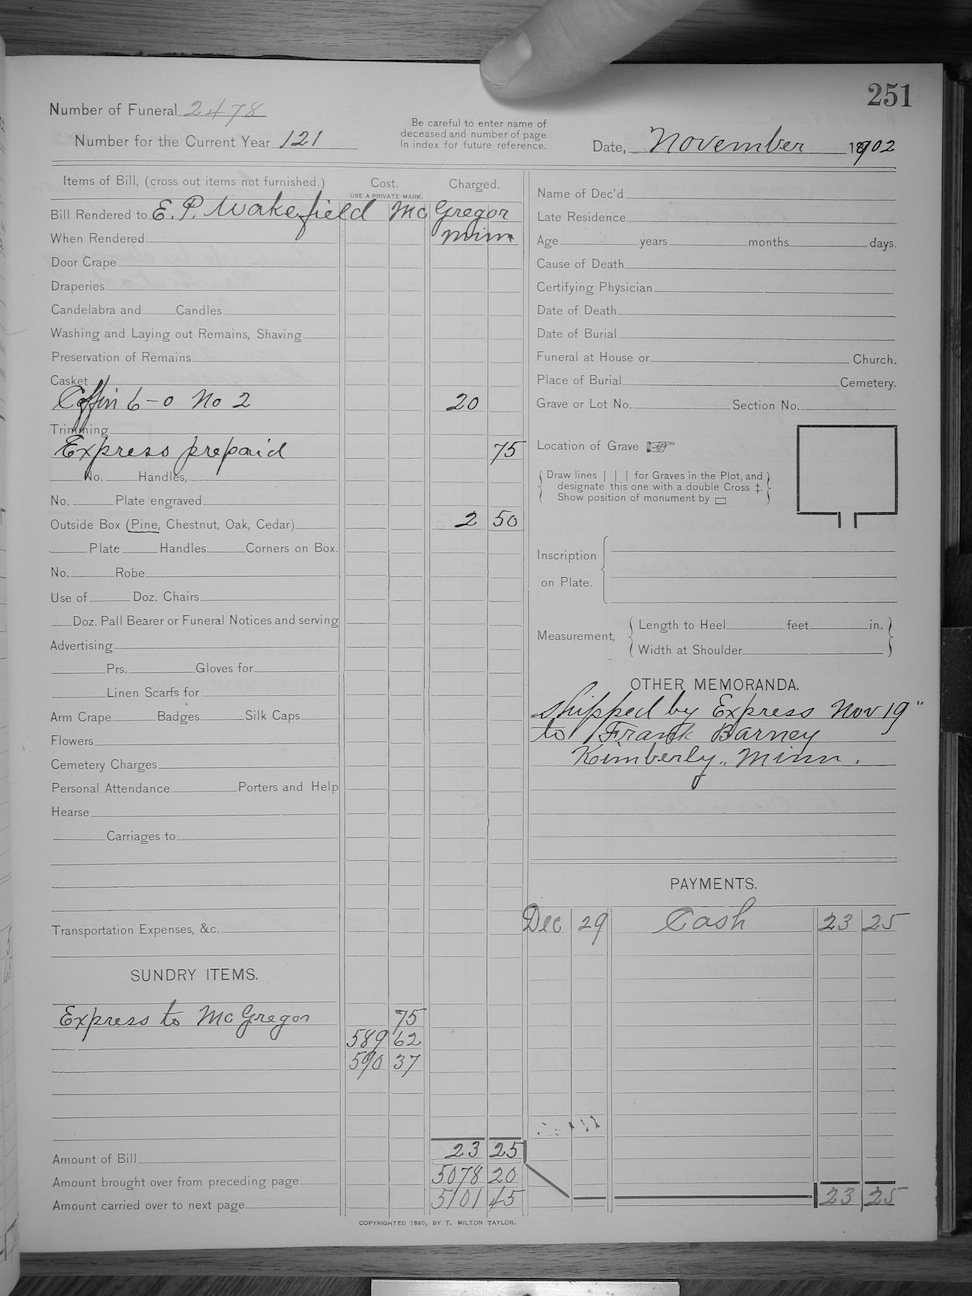 251
Number of Funeral 2478
Number for the Current Year 121
Be careful to enter name of
deceased and number of page
in index for future reference.
Date, November 1902
Items of Bill, (cross out items not furnished.) Cost. Charged.
USE A PRIVATE MARK.
Bill Rendered to E. P. Wakefield McGregor
When Rendered Minn
Door Crape
Draperies
Candelabra and Candles
Washing and Laying out Remains, Shaving
Preservation of Remains
Casket
Coffin 6-0 No 2 20
Trimming
Express prepaid 75
No. Handles,
No. Plate engraved
Outside Box (Pine, Chestnut, Oak, Cedar) 2 50
Plate Handles Corners on Box.
No. Robe
Use of Doz. Chairs
Doz. Pall Bearer or Funeral Notices and serving
Advertising
Prs. Gloves for
Linen Scarfs for
Arm Crape Badges Silk Caps
Flowers
Cemetery Charges
Personal Attendance Porters and Help
Hearse
Carriages to
Transportation Expenses, &c.
SUNDRY ITEMS.
Express to McGregor 75
589 62
590 37
Amount of Bill 23 25
Amount brought over from preceding page 5078 20
Amount carried over to next page 5101 45
Name of Dec'd
Late Residence
Age years months days.
Cause of Death
Certifying Physician
Date of Death
Date of Burial
Funeral at House or Church.
Place of Burial Cemetery.
Grave or Lot No. Section No.
Location of Grave
Draw lines | | | for Graves in the Plot, and
designate this one with a double Cross ‡.
Show position of monument by
Inscription
on Plate.
Measurement, Length to Heel feet in.
Width at Shoulder
OTHER MEMORANDA.
Shipped by Express Nov 19"
to Frank Barney
Kimberly, Minn.
PAYMENTS.
Dec 29 Cash 23 25
23 25
COPYRIGHTED 1890, BY T. MILTON TAYLOR.